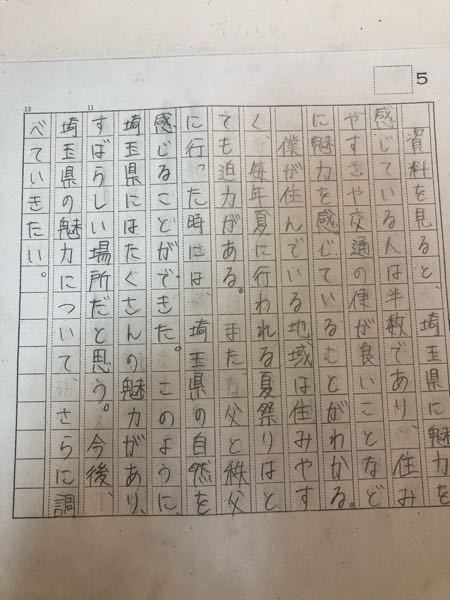 5
資料を見ると、埼玉県に魅力を
感じている人は半数であり、住み
やすさや交通の便が良いことなど
に魅力を感じていることがわかる。
僕が住んでいる地域は住みやす
く、毎年夏に行われる夏祭りはと
ても迫力がある。また、父と秩父
に行った時には、埼玉県の自然を
感じることができた。このように、
埼玉県にはたくさんの魅力があり、
11
すばらしい場所だと思う。今後、
埼玉県の魅力について、さらに調
13
べていきたい。